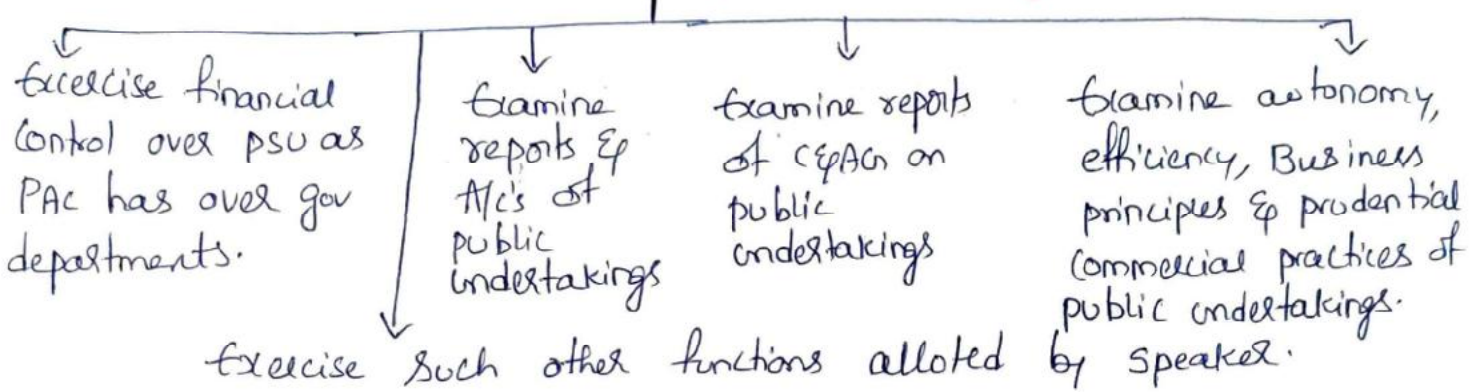 Excercise financial
Control over PSU as
PAC has over gov
departments.
Examine
reports &
A/c's of
public
undertakings
Examine reports
of C&AG on
public
undertakings
Examine autonomy,
efficiency, Business
principles & prudential
Commercial practices of
public undertakings.
Exercise such other functions alloted by Speaker.